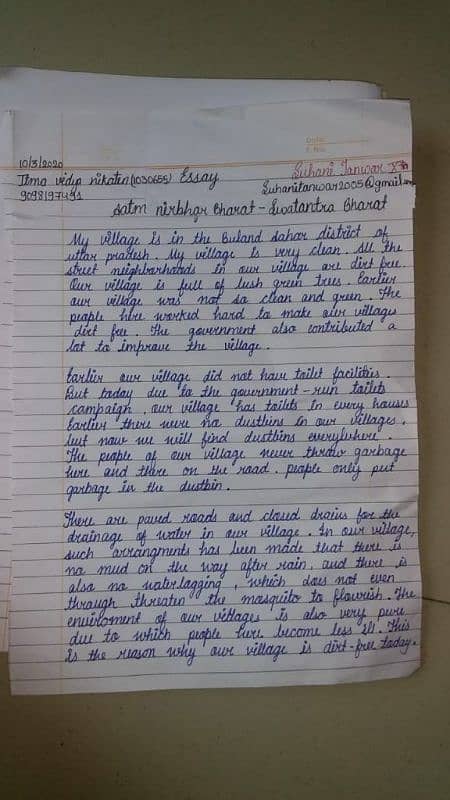 10/3/2020
Suhani Tanwar Xth
Itma vidya niketan(1030655) Essay
Suhanitanwar2005@gmail.com
9098197491
Satm nirbhar Bharat - Swatantra Bharat
My village is in the Buland sahar district of
uttar pradesh. My village is very clean. All the
street neighborhoods in our village are dirt free
Our village is full of lush green trees. Earlier
our village was not so clean and green. The
people here worked hard to make our villages
dirt free. The government also contributed a
lot to improve the village.
Earlier our village did not have toilet facilities.
But today due to the government-run toilets
campaign, our village has toilets in every houses
Earlier there were no dustbins in our villages,
but now we will find dustbins everywhere.
The people of our village never throw garbage
here and there on the road. people only put
garbage in the dustbin.
There are paved roads and closed drains for the
drainage of water in our village. In our village,
such arrangments has been made that there is
no mud on the way after rain, and there is
also no waterlagging, which does not even
through threaten the mosquito to flourish. The
enviroment of our villages is also very pure
due to which people here become less ill. This
is the reason why our village is dirt-free today.